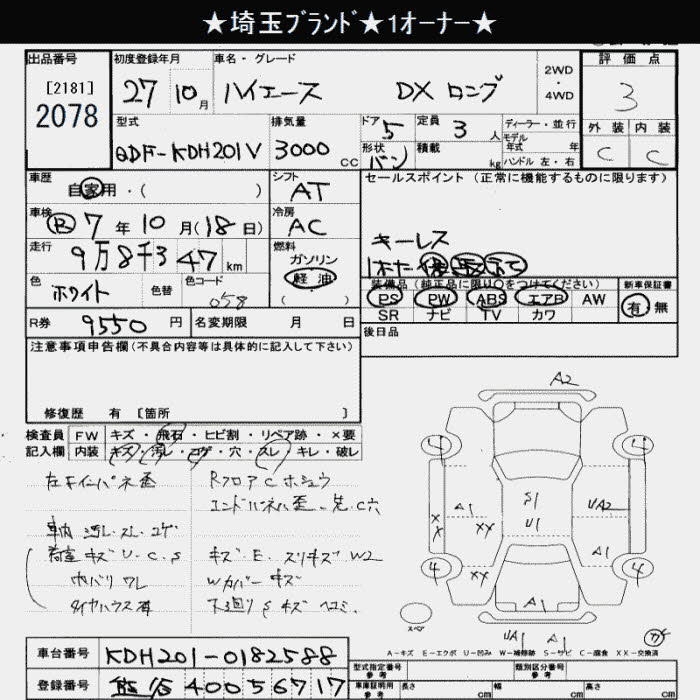 ★埼玉ブランド★1オーナー★
出品番号 初度登録年月 車名・グレード 2WD・4WD 評価点
[2181]
2078 27 10月 ハイエース DX ロング 3
型式 排気量 ドア 5 定員 3人 ディーラー・並行 外装 内装
モデル年式 年
QDF-KDH201V 3000CC 形状 バン 積載 kg ハンドル 左・右 C C
車歴 自家用・( ) シフト AT セールスポイント (正常に機能するものに限ります)
車検 R 7年 10月(18日) 冷房 AC
キーレス
走行 9万8千347km 燃料 ガソリン 軽油 ( )
色 ホワイト 色替 色コード 058
装備品(純正品に限り○をつけてください) 新車保証書
PS PW ABS エアB AW 有・無
SR ナビ TV カワ
R券 9550円 名変期限 月 日
後日品
注意事項申告欄(不具合内容等は具体的に記入して下さい)
修復歴 有 [箇所 ]
検査員記入欄 FW キズ・飛石・ヒビ割・リペア跡・×要
内装 キズ・汚レ・コゲ・穴・スレ・キレ・破レ
左右インパネ歪 Rフロア C ホシュウ
エンドパネル歪
車内 汚レ・スレ・コゲ
荷室 キズ U・C・S キズ E スリキズ W2
内バリ ワレ Wカバー キズ
タイヤハウス 下廻り S キズ ヘコミ
A2
4 4
A1 S1 UA2
XX XX U1
A1
4 XX 4
A1
スペア UA1 A1
A-キズ E-エクボ U-凹み W-補修跡 S-サビ C-腐食 XX-交換済
車台番号 KDH201-0182588
型式指定番号 参考 類別区分番号 参考
登録番号 40056717
車庫証明用 参考 長さ cm 幅 cm 高さ cm